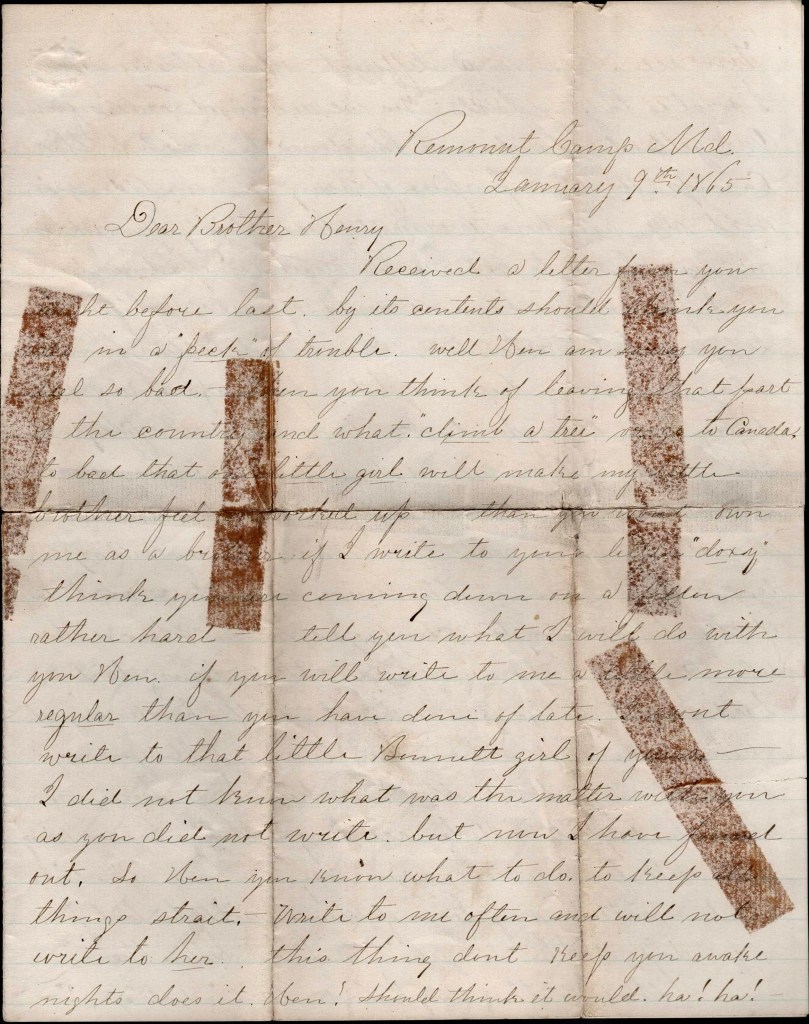 Remount Camp Md.
January 9th 1865
Dear Brother Henry
Received a letter from you
night before last. by its contents should think you
was in a "peck" of trouble. well Hen am sorry you
feel so bad. — When you think of leaving that part
the country and what. "climb a tree" or go to Canada.
to bad that one little girl will make my little
brother feel so worked up than you wont own
me as a brother if I write to your little "doxy"
think you are coming down on a fellow
rather hard tell you what I will do with
you Hen. if you will write to me a little more
regular than you have done of late. I wont
write to that little Bennett girl of yours —
I did not know what was the matter with you
as you did not write. but now I have found
out. So Hen you know what to do. to keep all
things strait. — Write to me often and will not
write to her. this thing dont keep you awake
nights does it. Hen! should think it would. ha! ha! —